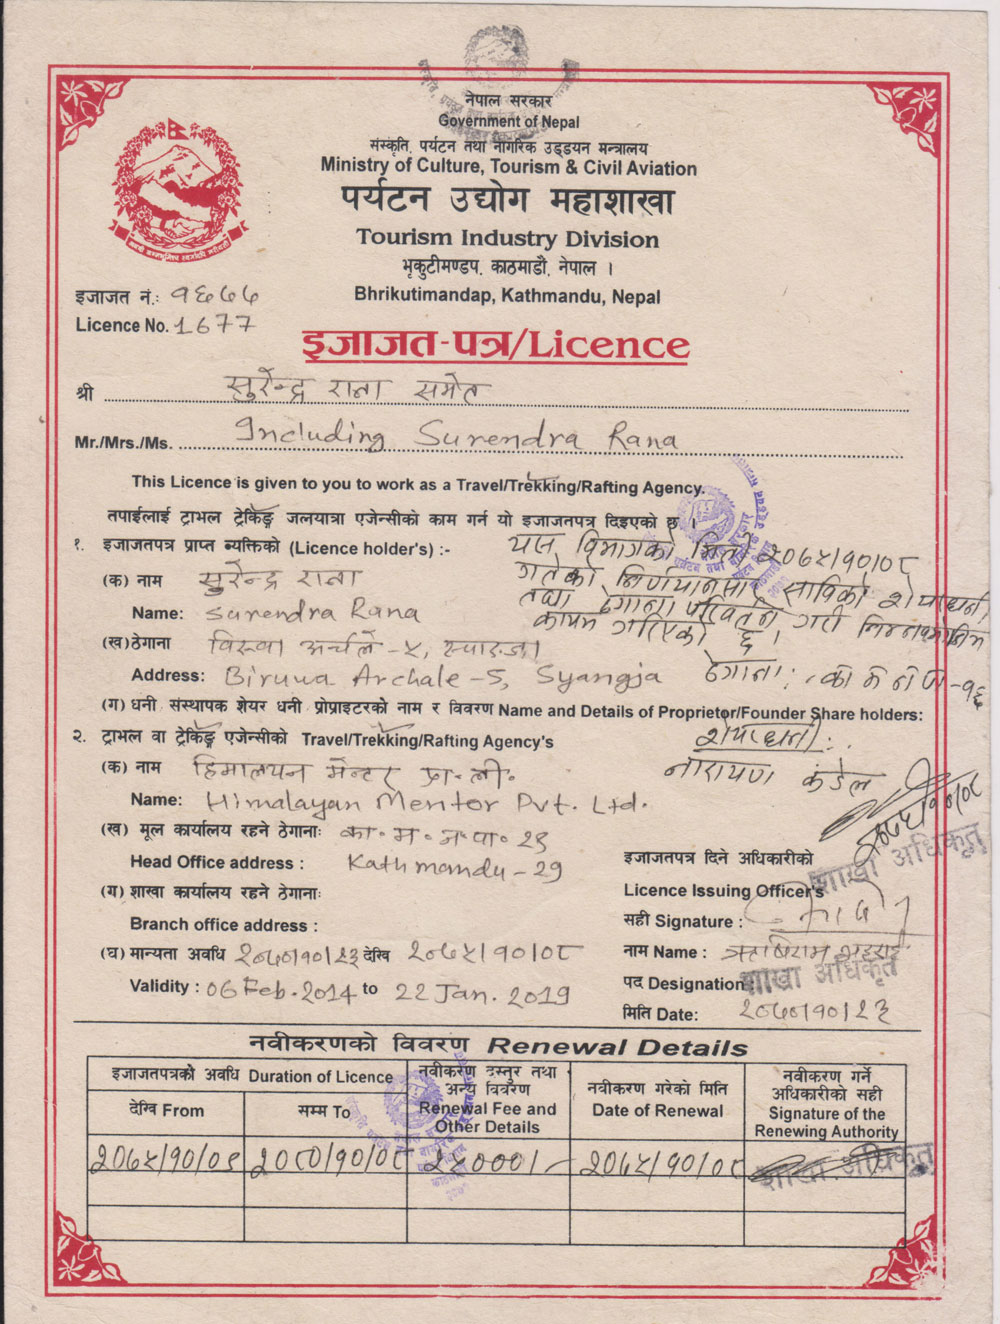 नेपाल सरकार
Government of Nepal
संस्कृति, पर्यटन तथा नागरिक उड्डयन मन्त्रालय
Ministry of Culture, Tourism & Civil Aviation
पर्यटन उद्योग महाशाखा
Tourism Industry Division
भृकुटीमण्डप, काठमाडौं, नेपाल ।
Bhrikutimandap, Kathmandu, Nepal
इजाजत नं.: १६७७
Licence No. 1677
इजाजत-पत्र/Licence
श्री सुरेन्द्र राना समेत
Mr./Mrs./Ms. Including Surendra Rana
This Licence is given to you to work as a Travel/Trekking/Rafting Agency.
तपाईलाई ट्राभल ट्रेकिङ्ग जलयात्रा एजेन्सीको काम गर्न यो इजाजतपत्र दिइएको छ ।
१. इजाजतपत्र प्राप्त ब्यक्तिको (Licence holder's) :-
यस विभागको मिति २०७५/१०/०८
गतेको निर्णयानुसार साविकको शेयरधनी
तथा ठेगाना परिवर्तन गरी निम्न
कायम गरिएको छ ।
(क) नाम सुरेन्द्र राना
Name: Surendra Rana
(ख) ठेगाना विरुवा अर्चले -५, स्याङ्जा
Address: Biruwa Archale -5, Syangja
ठेगाना: का.म.न.पा-१६
(ग) धनी संस्थापक शेयर धनी प्रोप्राइटरको नाम र विवरण Name and Details of Proprietor/Founder Share holders:
शेयरधनी:
नारायण कंडेल
२. ट्राभल वा ट्रेकिङ्ग एजेन्सीको Travel/Trekking/Rafting Agency's
(क) नाम हिमालयन मेन्टर प्रा. ली.
Name: Himalayan Mentor Pvt. Ltd.
(ख) मूल कार्यालय रहने ठेगानाः का. म. न. पा. २९
Head Office address : Kathmandu - 29
(ग) शाखा कार्यालय रहने ठेगानाः
Branch office address :
(घ) मान्यता अवधि २०७०/१०/२३ देखि २०७५/१०/०८
Validity : 06 Feb. 2014 to 22 Jan. 2019
२०७५/१०/०८
शाखा अधिकृत
इजाजतपत्र दिने अधिकारीको
Licence Issuing Officer's
सही Signature :
नाम Name : ऋषिराम भट्टराई
शाखा अधिकृत
पद Designation:
मिति Date: २०७०/१०/२३
नवीकरणको विवरण Renewal Details
इजाजतपत्रको अवधि Duration of Licence
देखि From
सम्म To
नवीकरण दस्तुर तथा अन्य विवरण
Renewal Fee and Other Details
नवीकरण गरेको मिति
Date of Renewal
नवीकरण गर्ने अधिकारीको सही
Signature of the Renewing Authority
२०७५/१०/०९ २०८०/१०/०८ २५०००/- २०७५/१०/०८ शाखा अधिकृत